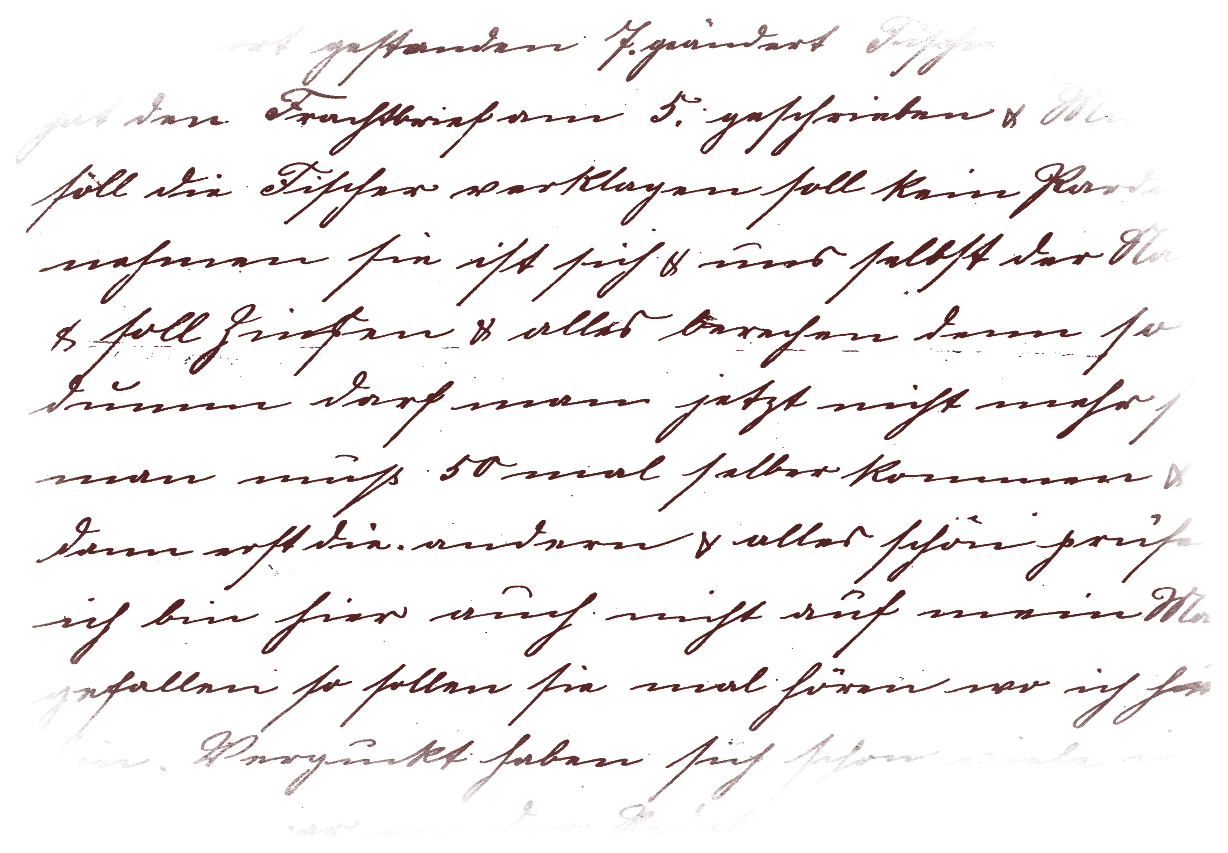 ort gestanden 7. geändert Fischer
hat den Frachtbrief am 5. geschrieben &
soll die Fischer verklagen soll kein
nehmen sie ist sich & uns selbst der
& soll Zinsen & alles berechen denn so
dumm darf man jetzt nicht mehr
man muß 50 mal selber kommen &
dann erst die. andern & alles schön prüfe
ich bin hier auch nicht auf mein
gefallen so sollen sie mal hören wo ich
in. Verguckt haben sich schon viele
an den